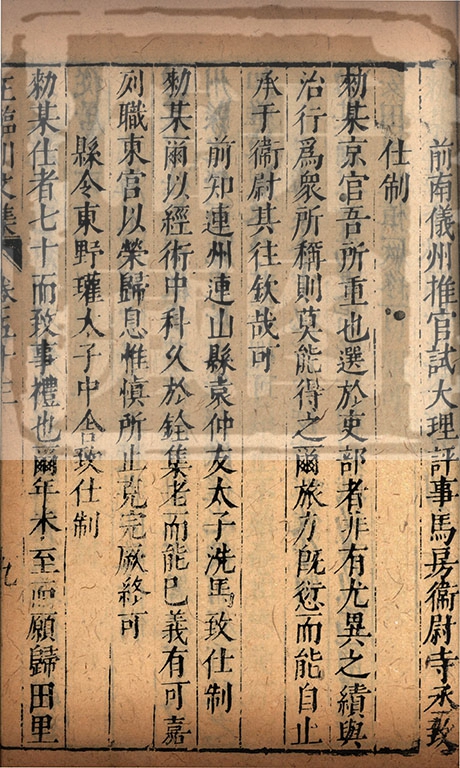 前南儀州推官試大理評事馬房衞尉寺丞致
仕制
勑某京官吾所重也選於吏部者非有尤異之績與
治行爲衆所稱則莫能得之爾旅力旣愆而能自止
承于衞尉其往欽哉可
前知連州連山縣袁仲友太子洗馬致仕制
勑某爾以經術中科久於銓集老而能已義有可嘉
列職東宫以榮歸息惟慎所止克完厥終可
縣令東野瓘太子中舍致仕制
勑某仕者七十而致事禮也爾年未至而願歸田里
王臨川文集 卷五十三 九